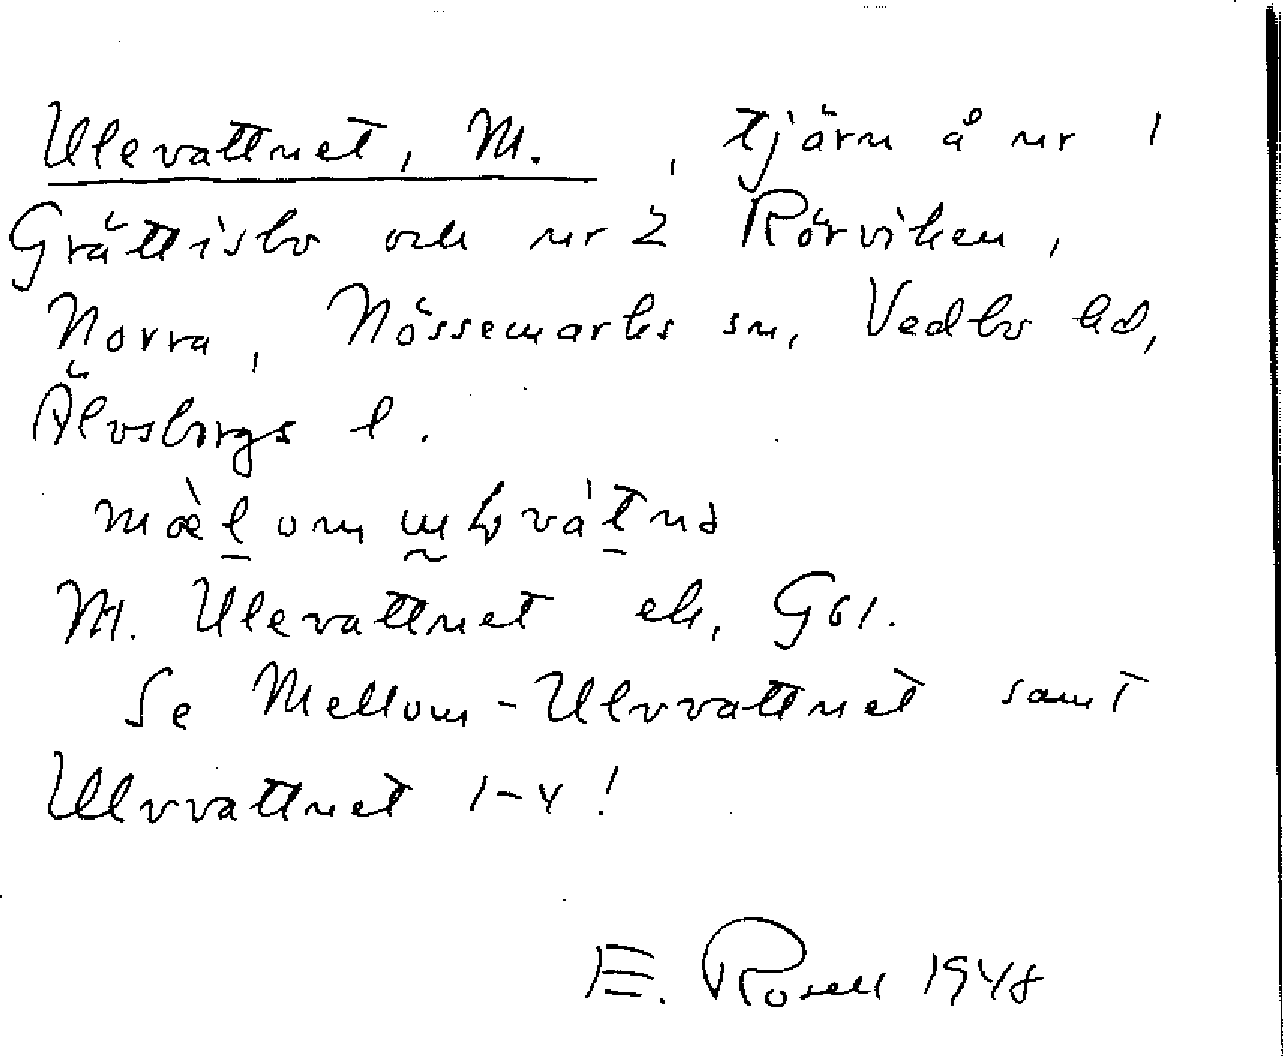 Ulevattnet, M. , tjärn å nr 1
Grättisbo och nr 2 Rörviken,
Norra, Nössemarks sn, Vedbo hd,
Älvsborgs l.
M. Ulevattnet ek. G61.
Se Mellom-Ulvvattnet samt
Ulvvattnet 1-4!
E. Rosell 1948